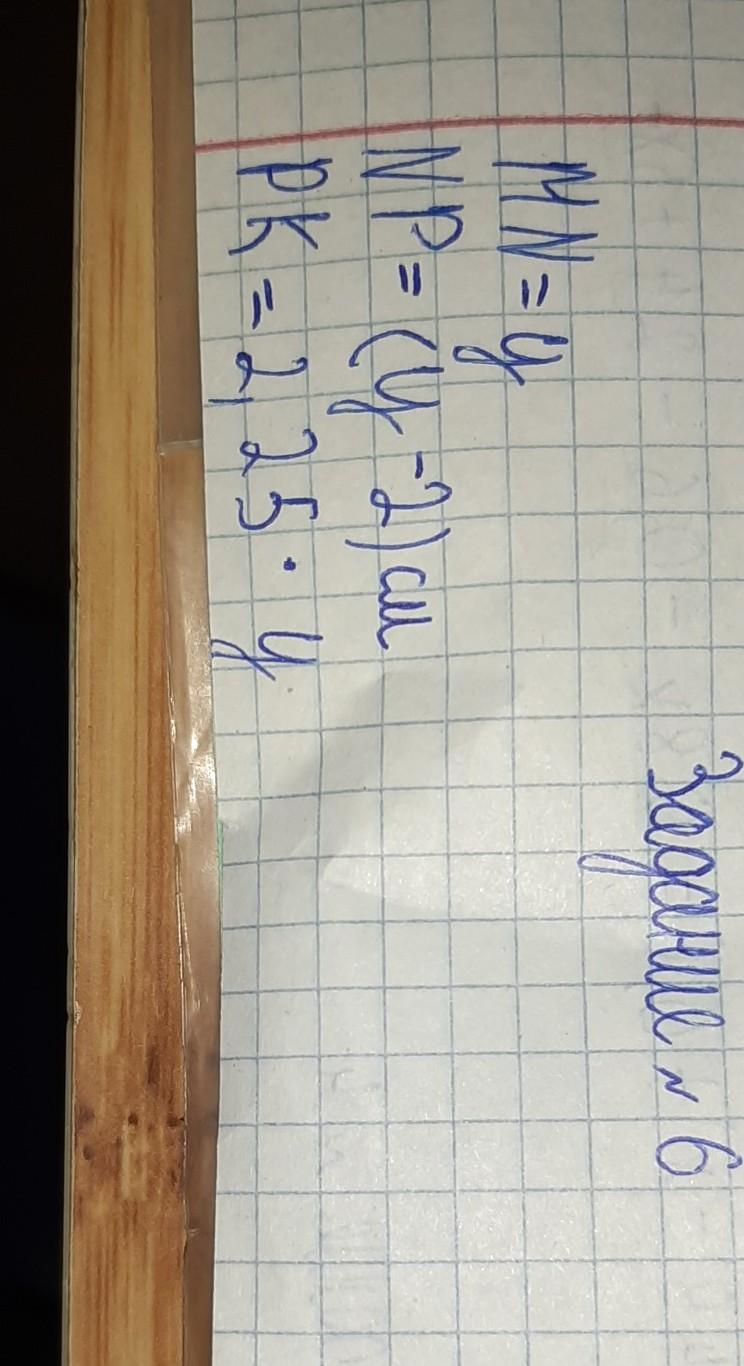 Задание N 6
MN = y
NP = (y -2) см
PK = 2,25 · y